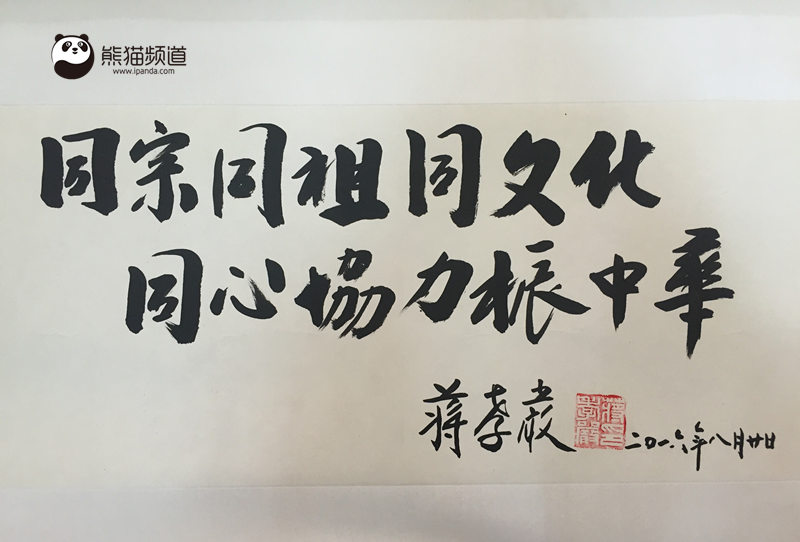 熊猫频道
www.ipanda.com
同宗同祖同文化
同心協力振中華
蒋孝嚴
二〇一六年八月廿日